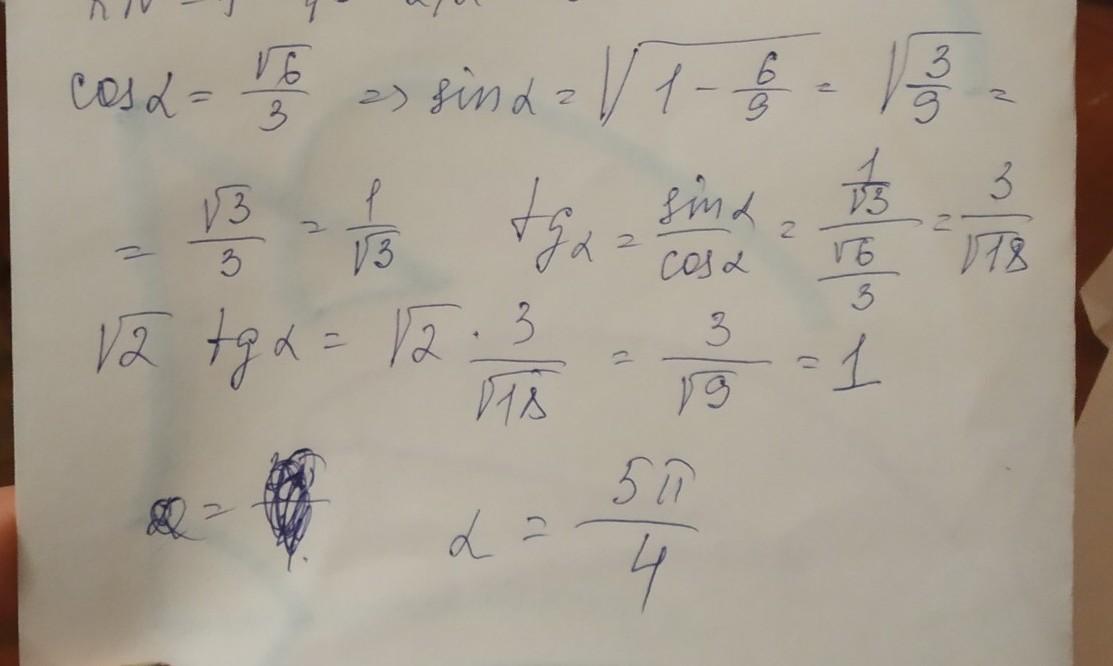 cosα = √6/3 => sinα = √(1 - 6/9) = √(3/9) =
= √3/3 = 1/√3 tgα = sinα/cosα = (1/√3)/(√6/3) = 3/√18
√2 tgα = √2 · 3/√18 = 3/√9 = 1
α = 5π/4